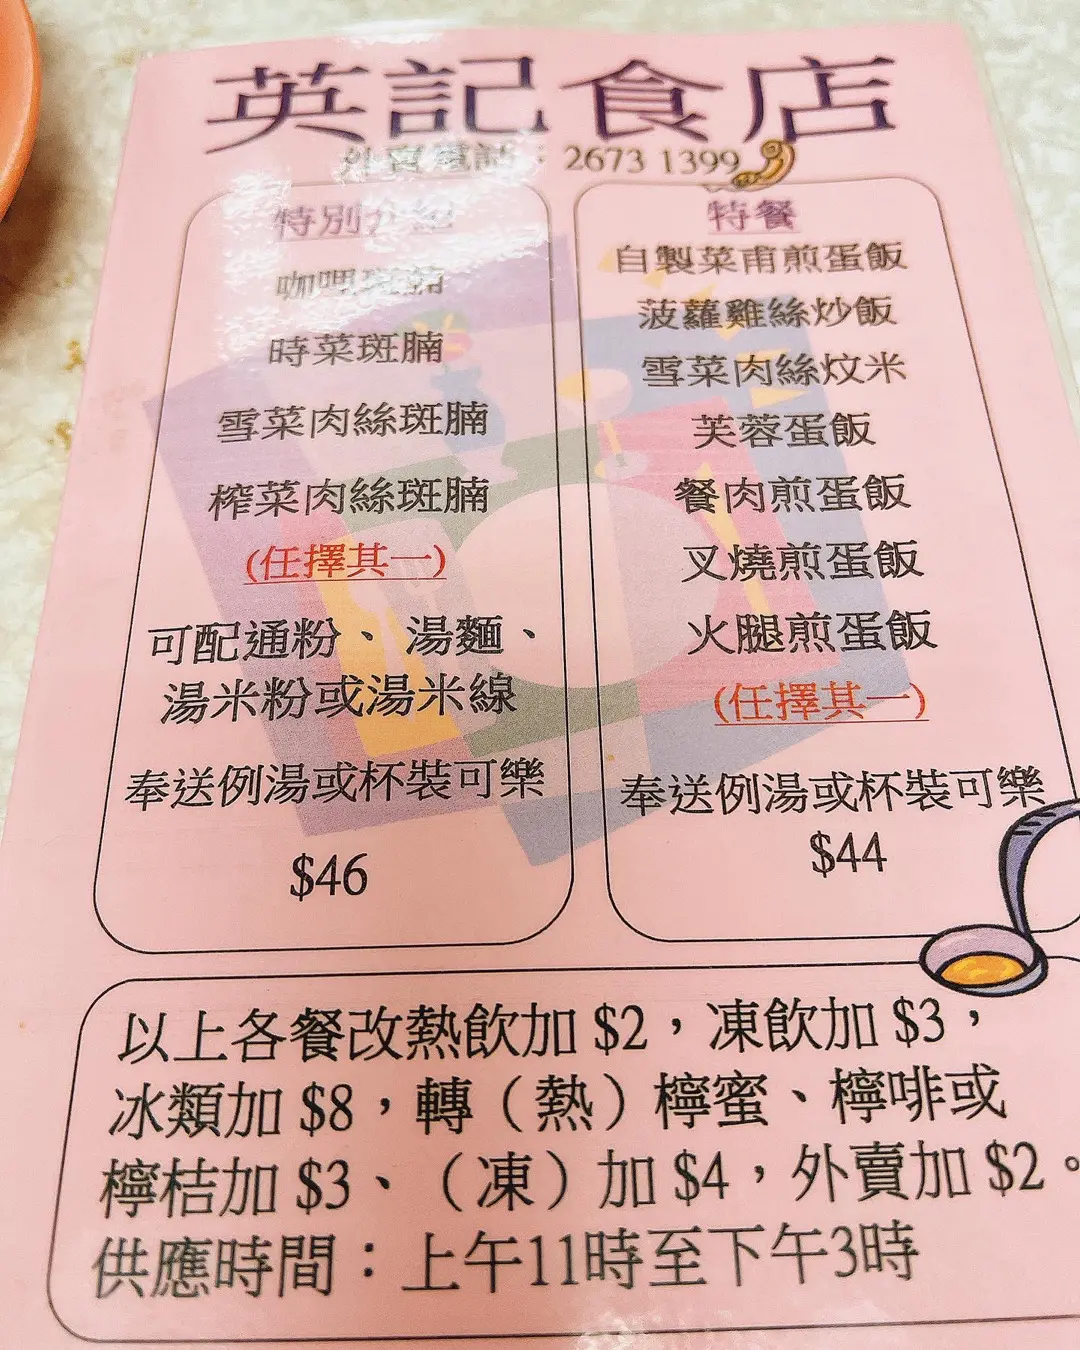 英記食店
外賣電話：2673 1399
特別介紹
咖喱斑腩
時菜斑腩
雪菜肉絲斑腩
榨菜肉絲斑腩
(任擇其一)
可配通粉、湯麵、
湯米粉或湯米線
奉送例湯或杯裝可樂
$46
特餐
自製菜甫煎蛋飯
菠蘿雞絲炒飯
雪菜肉絲炆米
芙蓉蛋飯
餐肉煎蛋飯
叉燒煎蛋飯
火腿煎蛋飯
(任擇其一)
奉送例湯或杯裝可樂
$44
以上各餐改熱飲加 $2，凍飲加 $3，
冰類加 $8，轉（熱）檸蜜、檸啡或
檸桔加 $3、（凍）加 $4，外賣加 $2。
供應時間：上午11時至下午3時